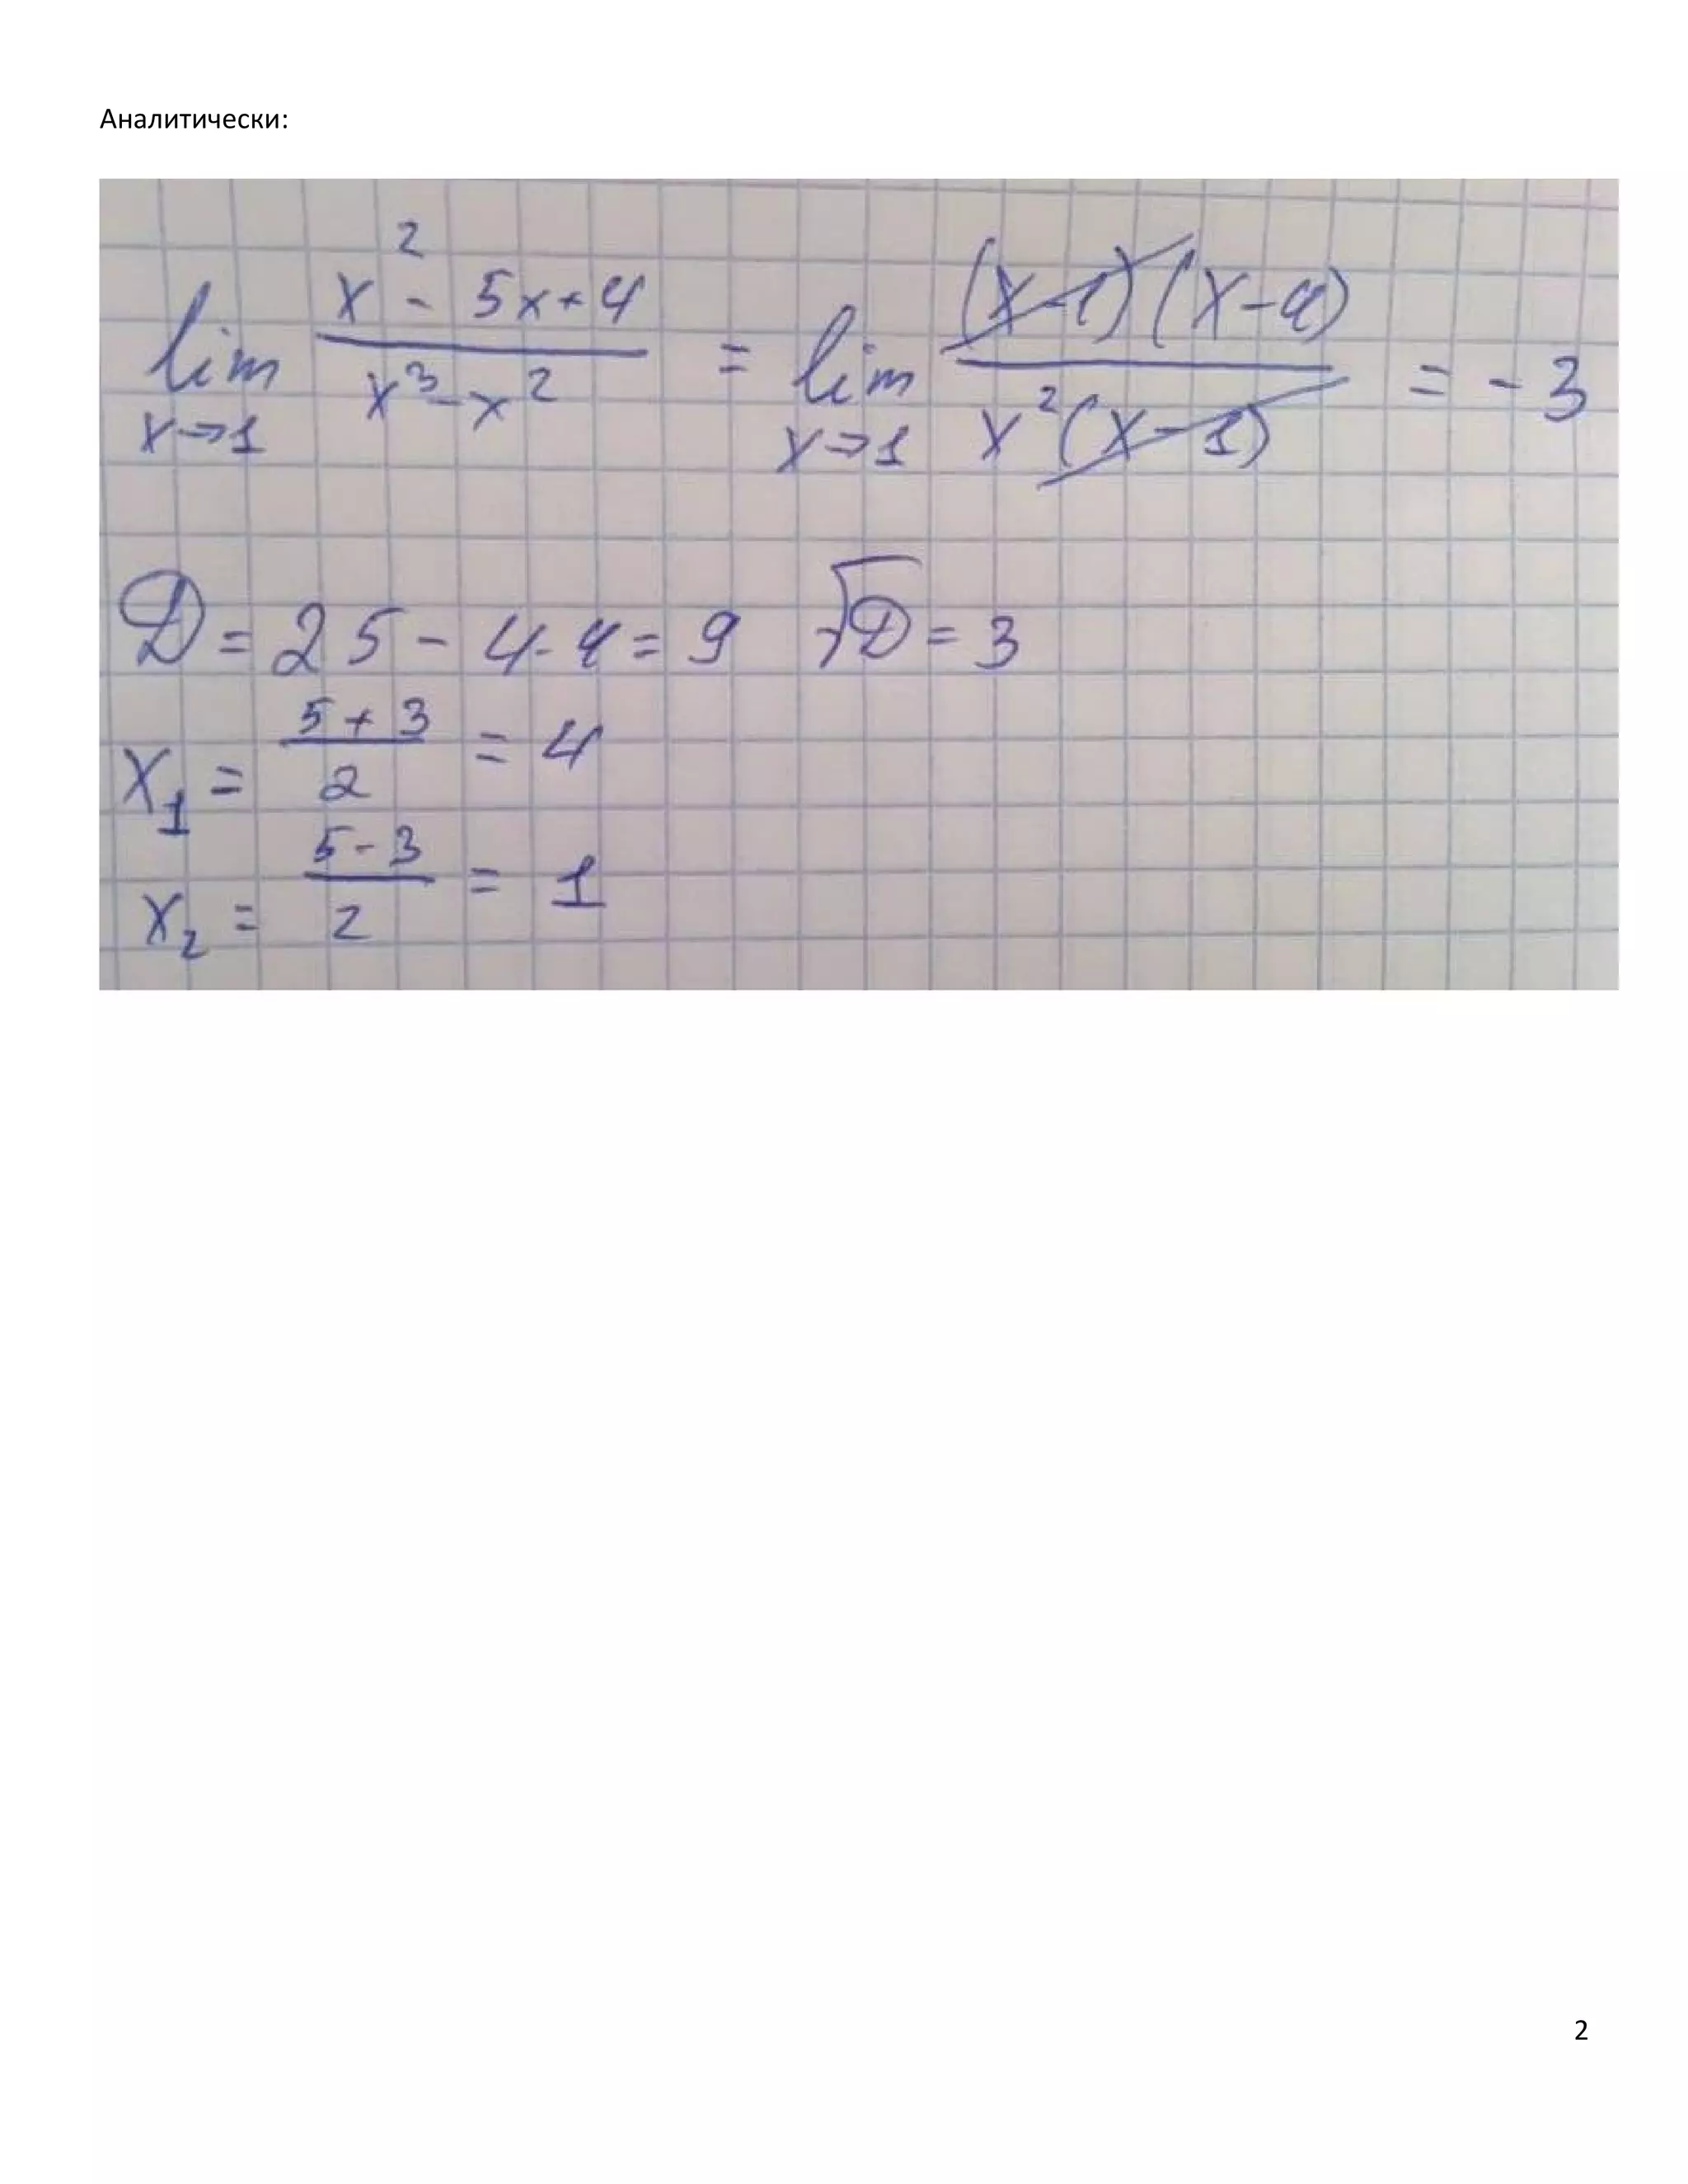 Аналитически:
lim x→1 (x² - 5x + 4)/(x³ - x²) = lim x→1 (x-1)(x-4)/(x²(x-1)) = -3
D = 25 - 4·4 = 9 √D = 3
x₁ = (5 + 3)/2 = 4
x₂ = (5 - 3)/2 = 1
2